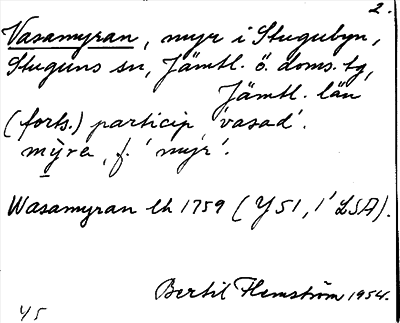 2.
Vasamyran, myr i Stugubyn,
Stuguns sn, Jämtl. ö. doms. tg,
Jämtl. län
(forts.) particip 'vasad'.
mỳra, f. 'myr'.
Wasamyran lh 1759 (Y51, 1' LSA).
Bertil Flemström 1954.
Y5